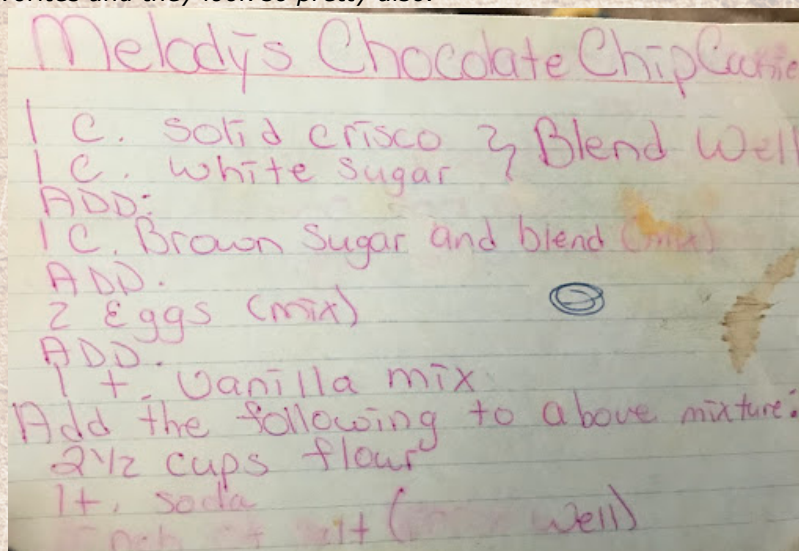 and they look so pretty also.
Melody's Chocolate Chip Cookie
1 C. Solid crisco } Blend Well
1 C. White Sugar
ADD:
1 C. Brown Sugar and blend (mix)
ADD.
2 Eggs (mix)
ADD.
1 t. Vanilla mix
Add the following to above mixture:
2 1/2 cups flour
1 t. soda
(Well)